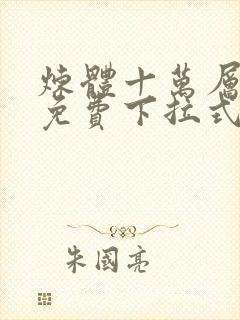 煉體十萬層
免費下拉式
朱國亮